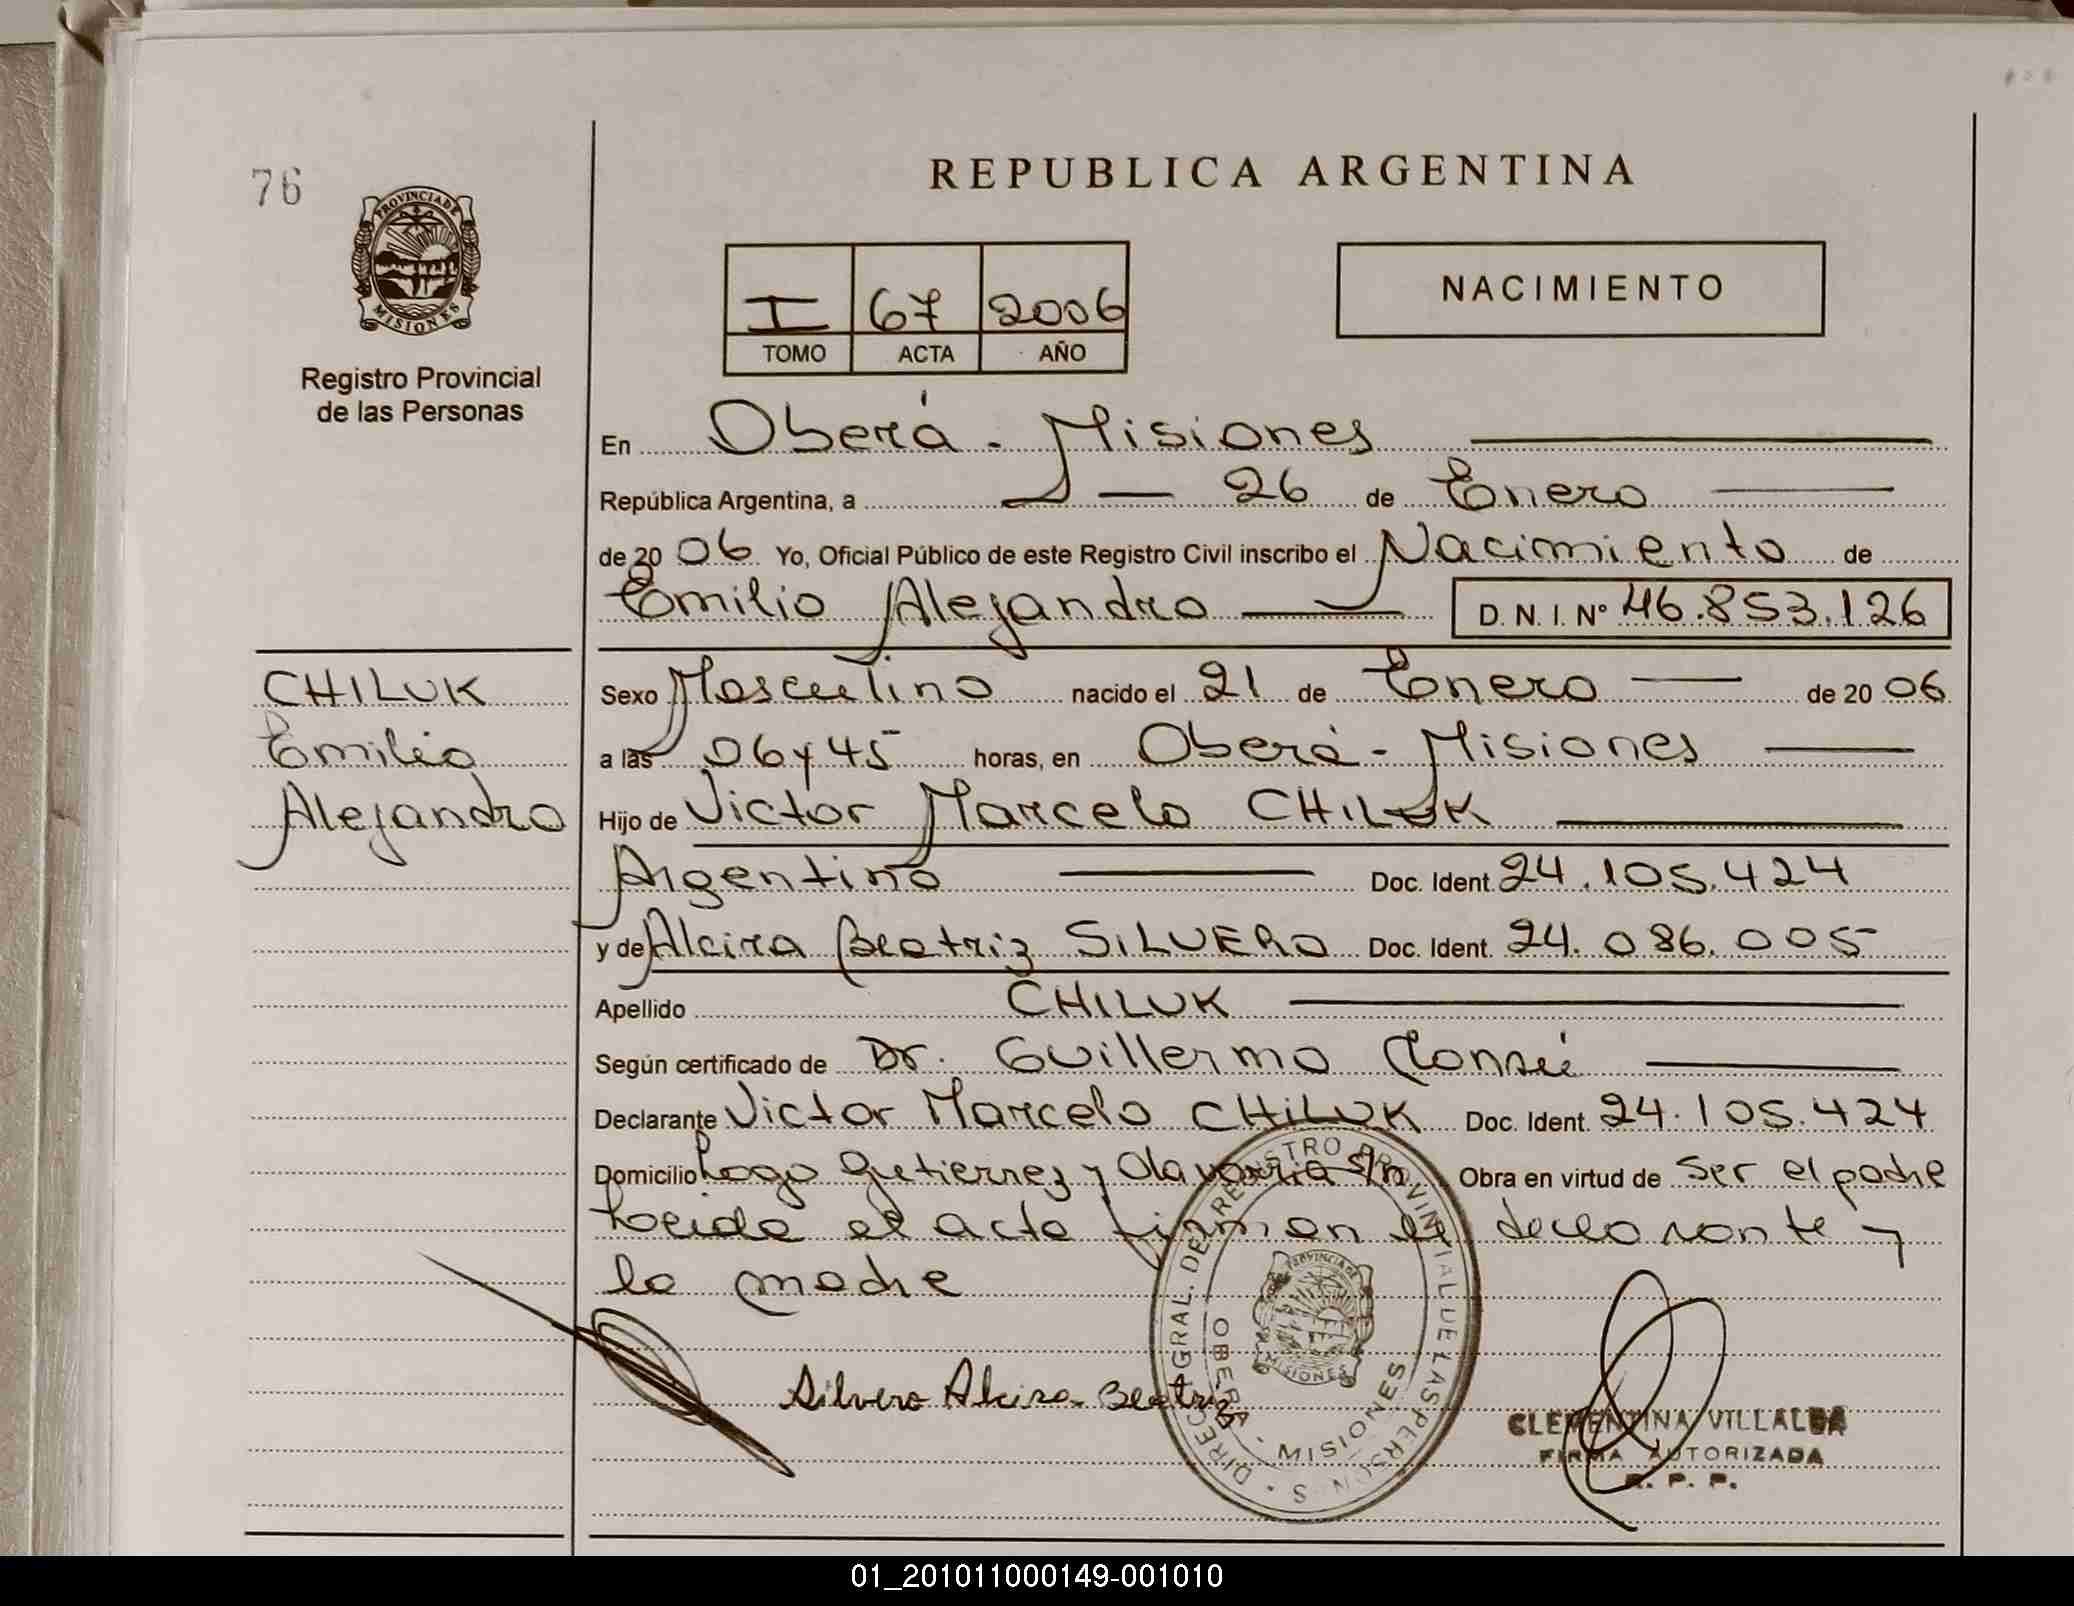 76
PROVINCIA DE
MISIONES
Registro Provincial
de las Personas
REPUBLICA ARGENTINA
I 67 2006
TOMO ACTA AÑO
NACIMIENTO
En Oberá - Misiones
República Argentina, a 26 de Enero
de 20 06 Yo, Oficial Público de este Registro Civil inscribo el Nacimiento de
Emilio Alejandro D. N. I. Nº 46.853.126
CHILUK
Emilio
Alejandro
Sexo Masculino nacido el 21 de Enero de 20 06
a las 06 y 45 horas, en Oberá - Misiones
Hijo de Victor Marcelo CHILUK
Argentino Doc. Ident. 24.105.424
y de Alcira Beatriz SILVERO Doc. Ident. 24.086.005
Apellido CHILUK
Según certificado de Dr. Guillermo
Declarante Victor Marcelo CHILUK Doc. Ident. 24.105.424
Domicilio Lago Gutierrez y Olavarria s/n Obra en virtud de ser el padre
Leida el acta firman el declarante y
la madre
Silvero Alcira Beatriz
DIREC. GRAL. DEL REGISTRO PROVINCIAL DE LAS PERSONAS
OBERA - MISIONES
PROVINCIA DE
MISIONES
CLEMENTINA VILLALBA
FIRMA AUTORIZADA
R. P. P.
01_201011000149-001010